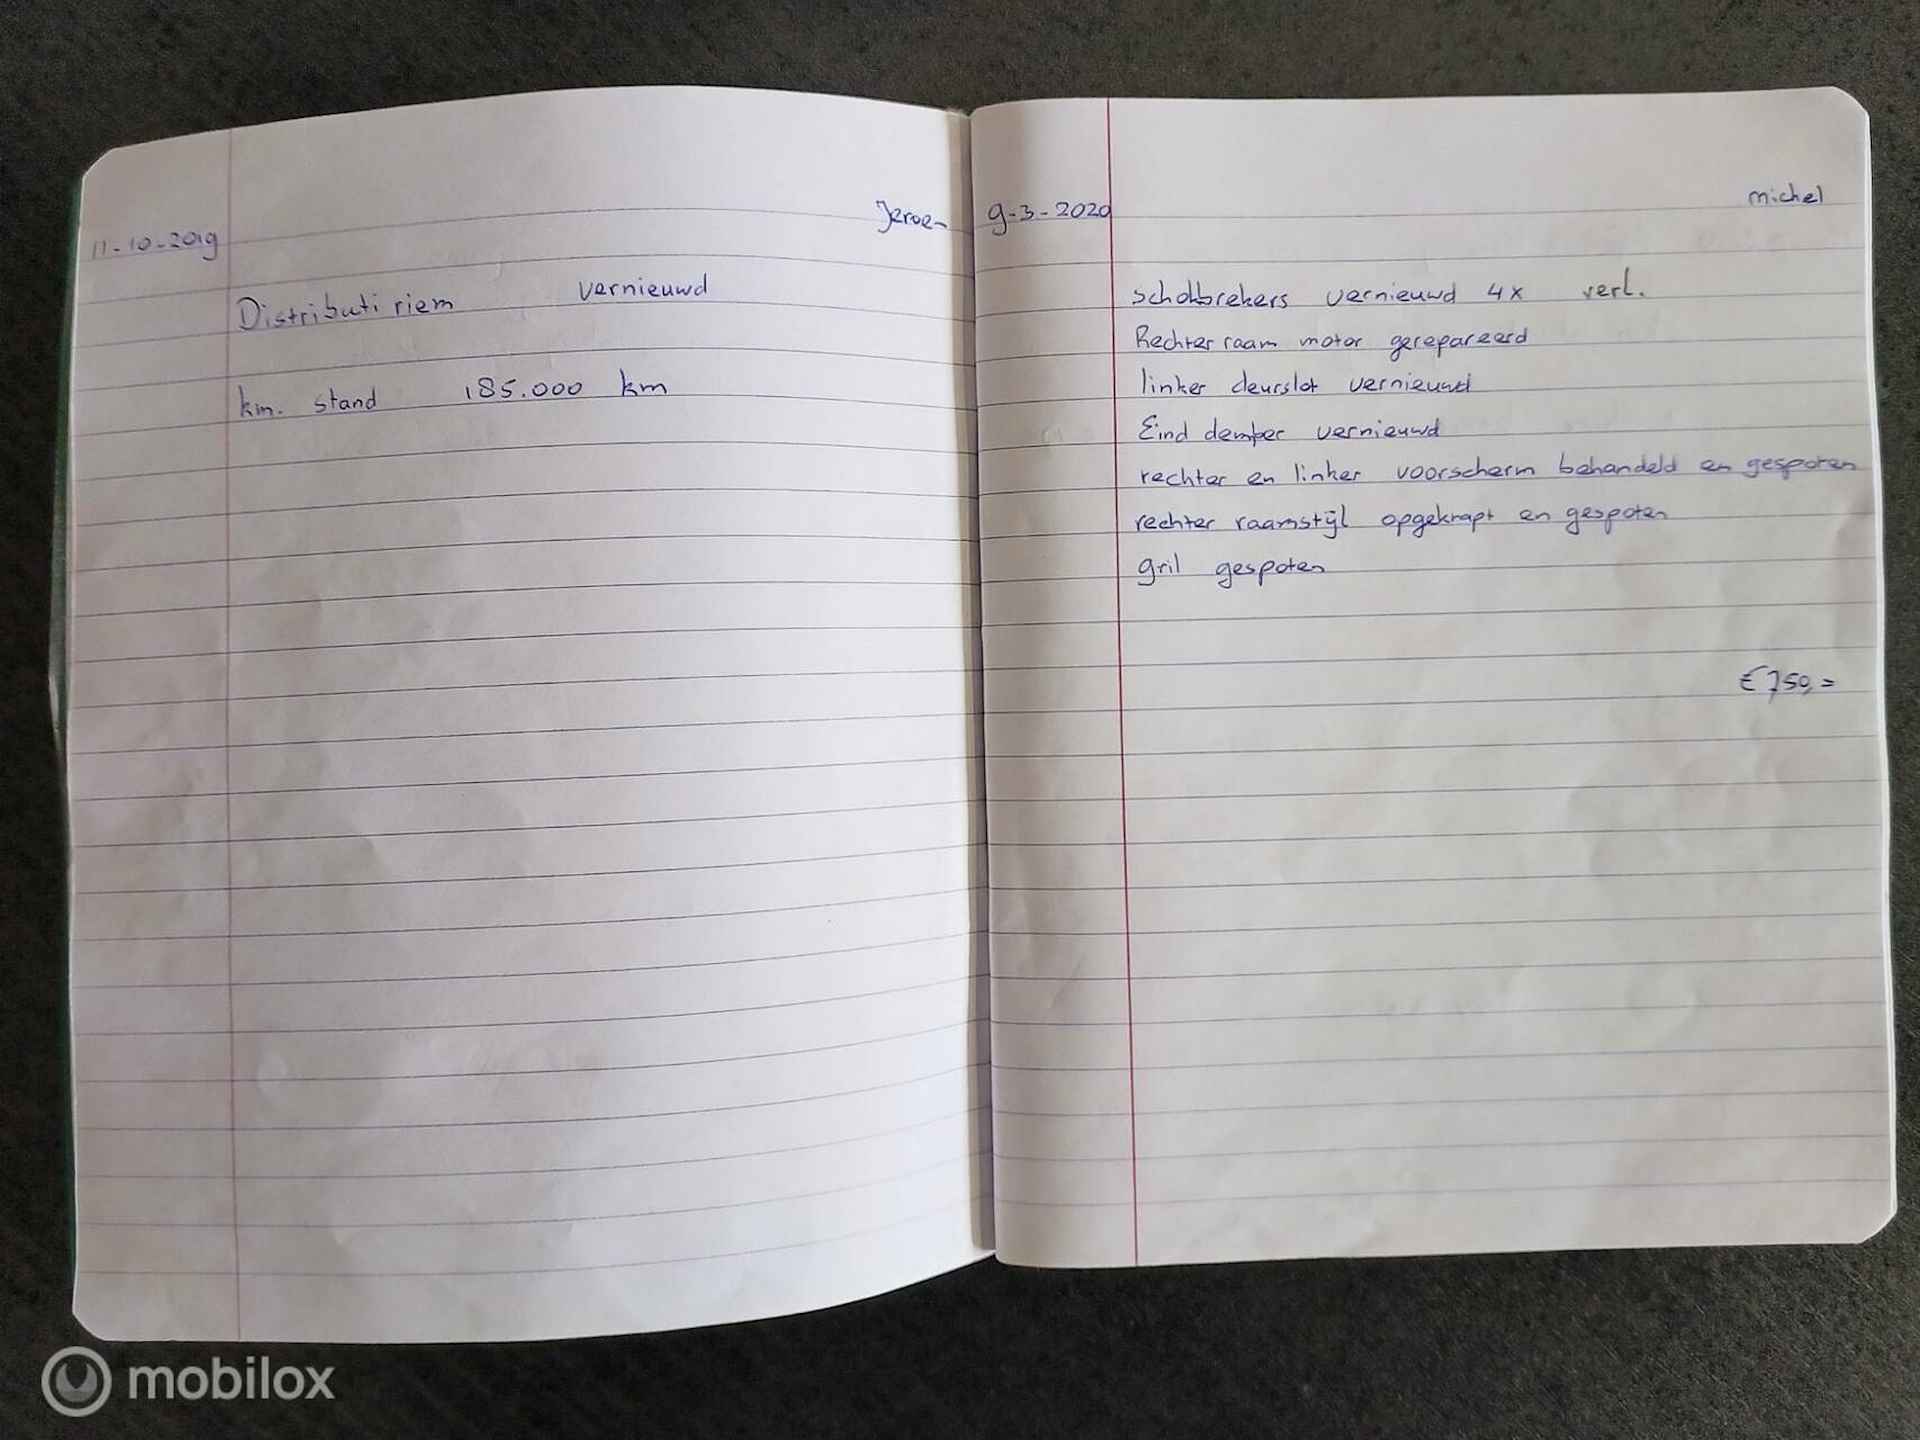 11-10-2019 Jeroen
Distributi riem vernieuwd
km. stand 185.000 km
9-3-2020 michel
schokbrekers vernieuwd 4x verl.
Rechter raam motor gerepareerd
linker deurslot vernieuwd
Eind demper vernieuwd
rechter en linker voorscherm behandeld en gespoten
rechter raamstijl opgeknapt en gespoten
gril gespoten
€ 750,=
mobilox